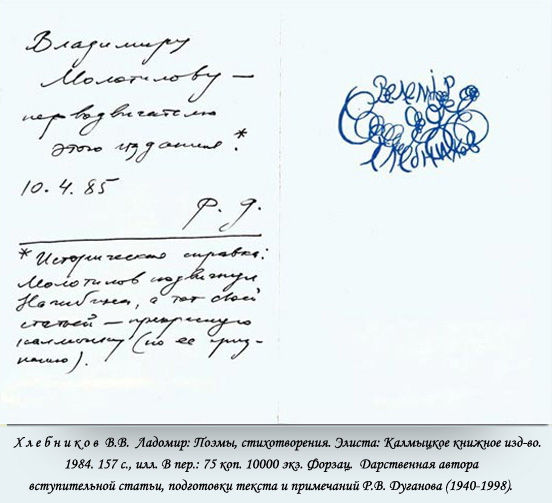 Владимиру
Молотилову —
перводвигателю
этого издания.*
10.4.85
Р. Д.
* Историческая справка:
Молотилов подвигнул
Нагибина, а тот своей
статьей — прекрасную
калмычку (по ее приз-
нанию).
Велемір
Хлебников
Хлебников В.В. Ладомир: Поэмы, стихотворения. Элиста: Калмыцкое книжное изд-во.
1984. 157 с., илл. В пер.: 75 коп. 10000 экз. Форзац. Дарственная автора
вступительной статьи, подготовки текста и примечаний Р.В. Дуганова (1940-1998).